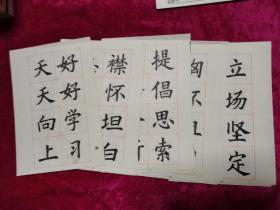 立场坚定
提倡思索
襟怀坦白
好好学习
天天向上